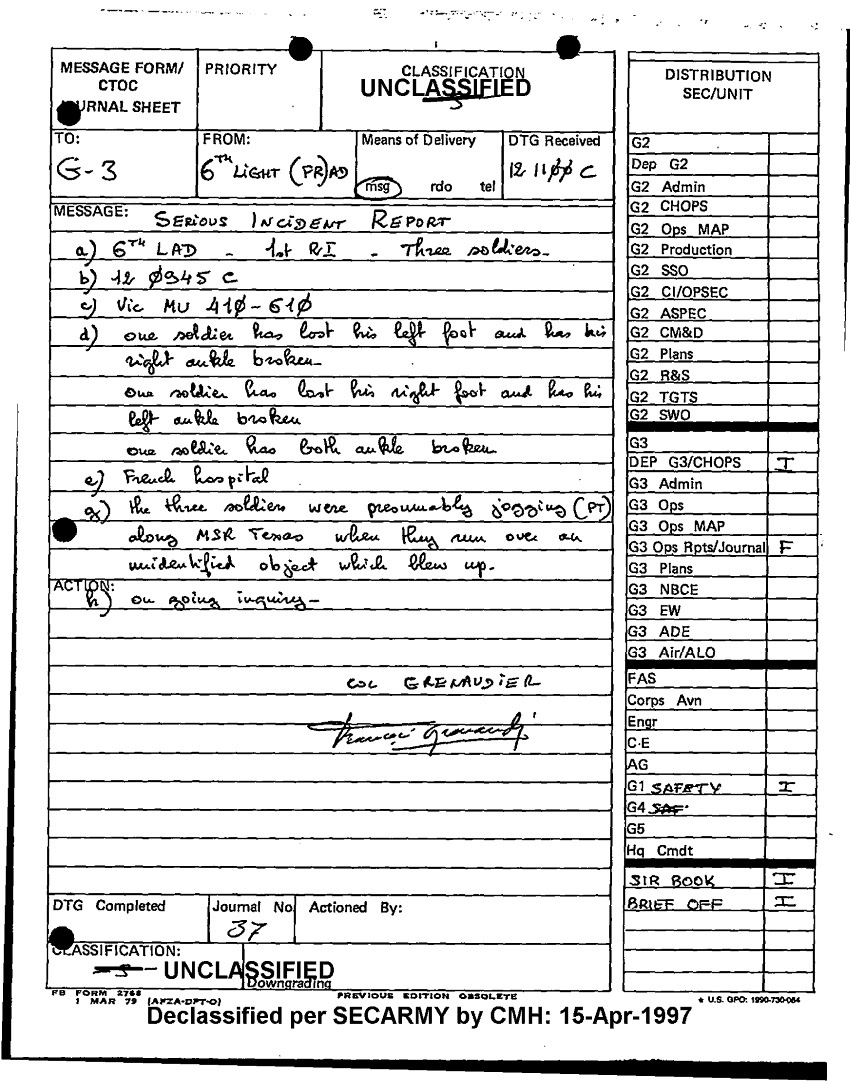 MESSAGE FORM/
CTOC
JOURNAL SHEET
PRIORITY
CLASSIFICATION
UNCLASSIFIED
TO:
G-3
FROM:
6TH LIGHT (FR)AD
Means of Delivery
msg rdo tel
DTG Received
12 11ØØ C
MESSAGE: SERIOUS INCIDENT REPORT
a) 6TH LAD - 1st RI - Three soldiers-
b) 12 Ø945 C
c) Vic MU 41Ø-61Ø
d) one soldier has lost his left foot and has his
right ankle broken-
one soldier has lost his right foot and has his
left ankle broken
one soldier has both ankle broken
e) French hospital
g) the three soldiers were presumably jogging (PT)
along MSR Texas when they run over an
unidentified object which blew up-
ACTION:
h) on going inquiry-
COL GRENAUDIER
DTG Completed
Journal No
37
Actioned By:
CLASSIFICATION:
UNCLASSIFIED
Downgrading
FB FORM 2768
1 MAR 79 (AFZA-DPT-O)
PREVIOUS EDITION OBSOLETE
* U.S. GPO: 1990-730-064
Declassified per SECARMY by CMH: 15-Apr-1997
DISTRIBUTION
SEC/UNIT
G2
Dep G2
G2 Admin
G2 CHOPS
G2 Ops MAP
G2 Production
G2 SSO
G2 CI/OPSEC
G2 ASPEC
G2 CM&D
G2 Plans
G2 R&S
G2 TGTS
G2 SWO
G3
DEP G3/CHOPS I
G3 Admin
G3 Ops
G3 Ops MAP
G3 Ops Rpts/Journal F
G3 Plans
G3 NBCE
G3 EW
G3 ADE
G3 Air/ALO
FAS
Corps Avn
Engr
C-E
AG
G1 SAFETY I
G4 SAF
G5
Hq Cmdt
SIR BOOK I
BRIEF OFF I